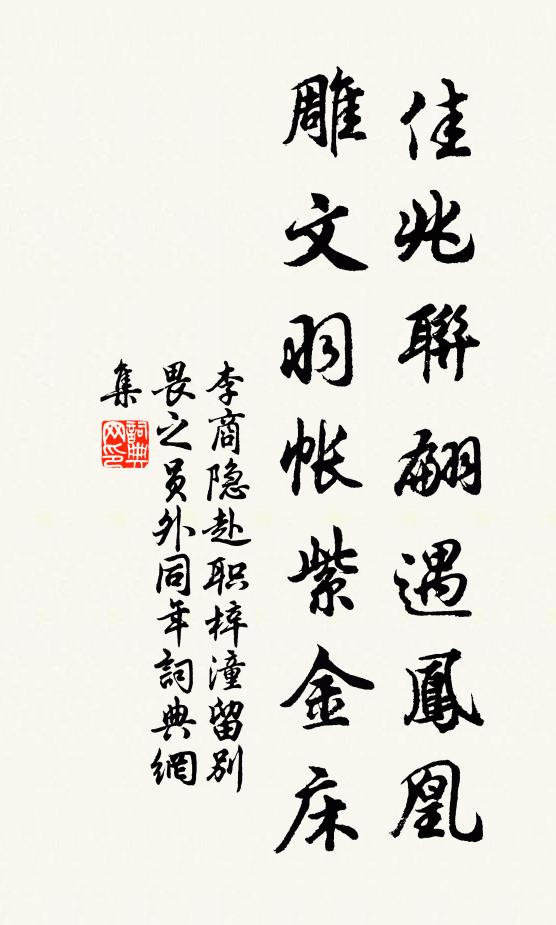 佳兆聯翩遇鳳凰
雕文羽帐紫金床
李商隐赴职梓潼留别
畏之员外同年詞典網
集
詞典网印